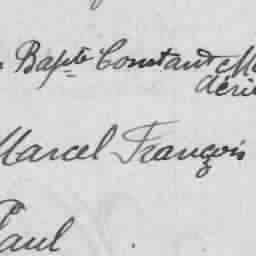 Bapte Constant
Marcel François
Paul